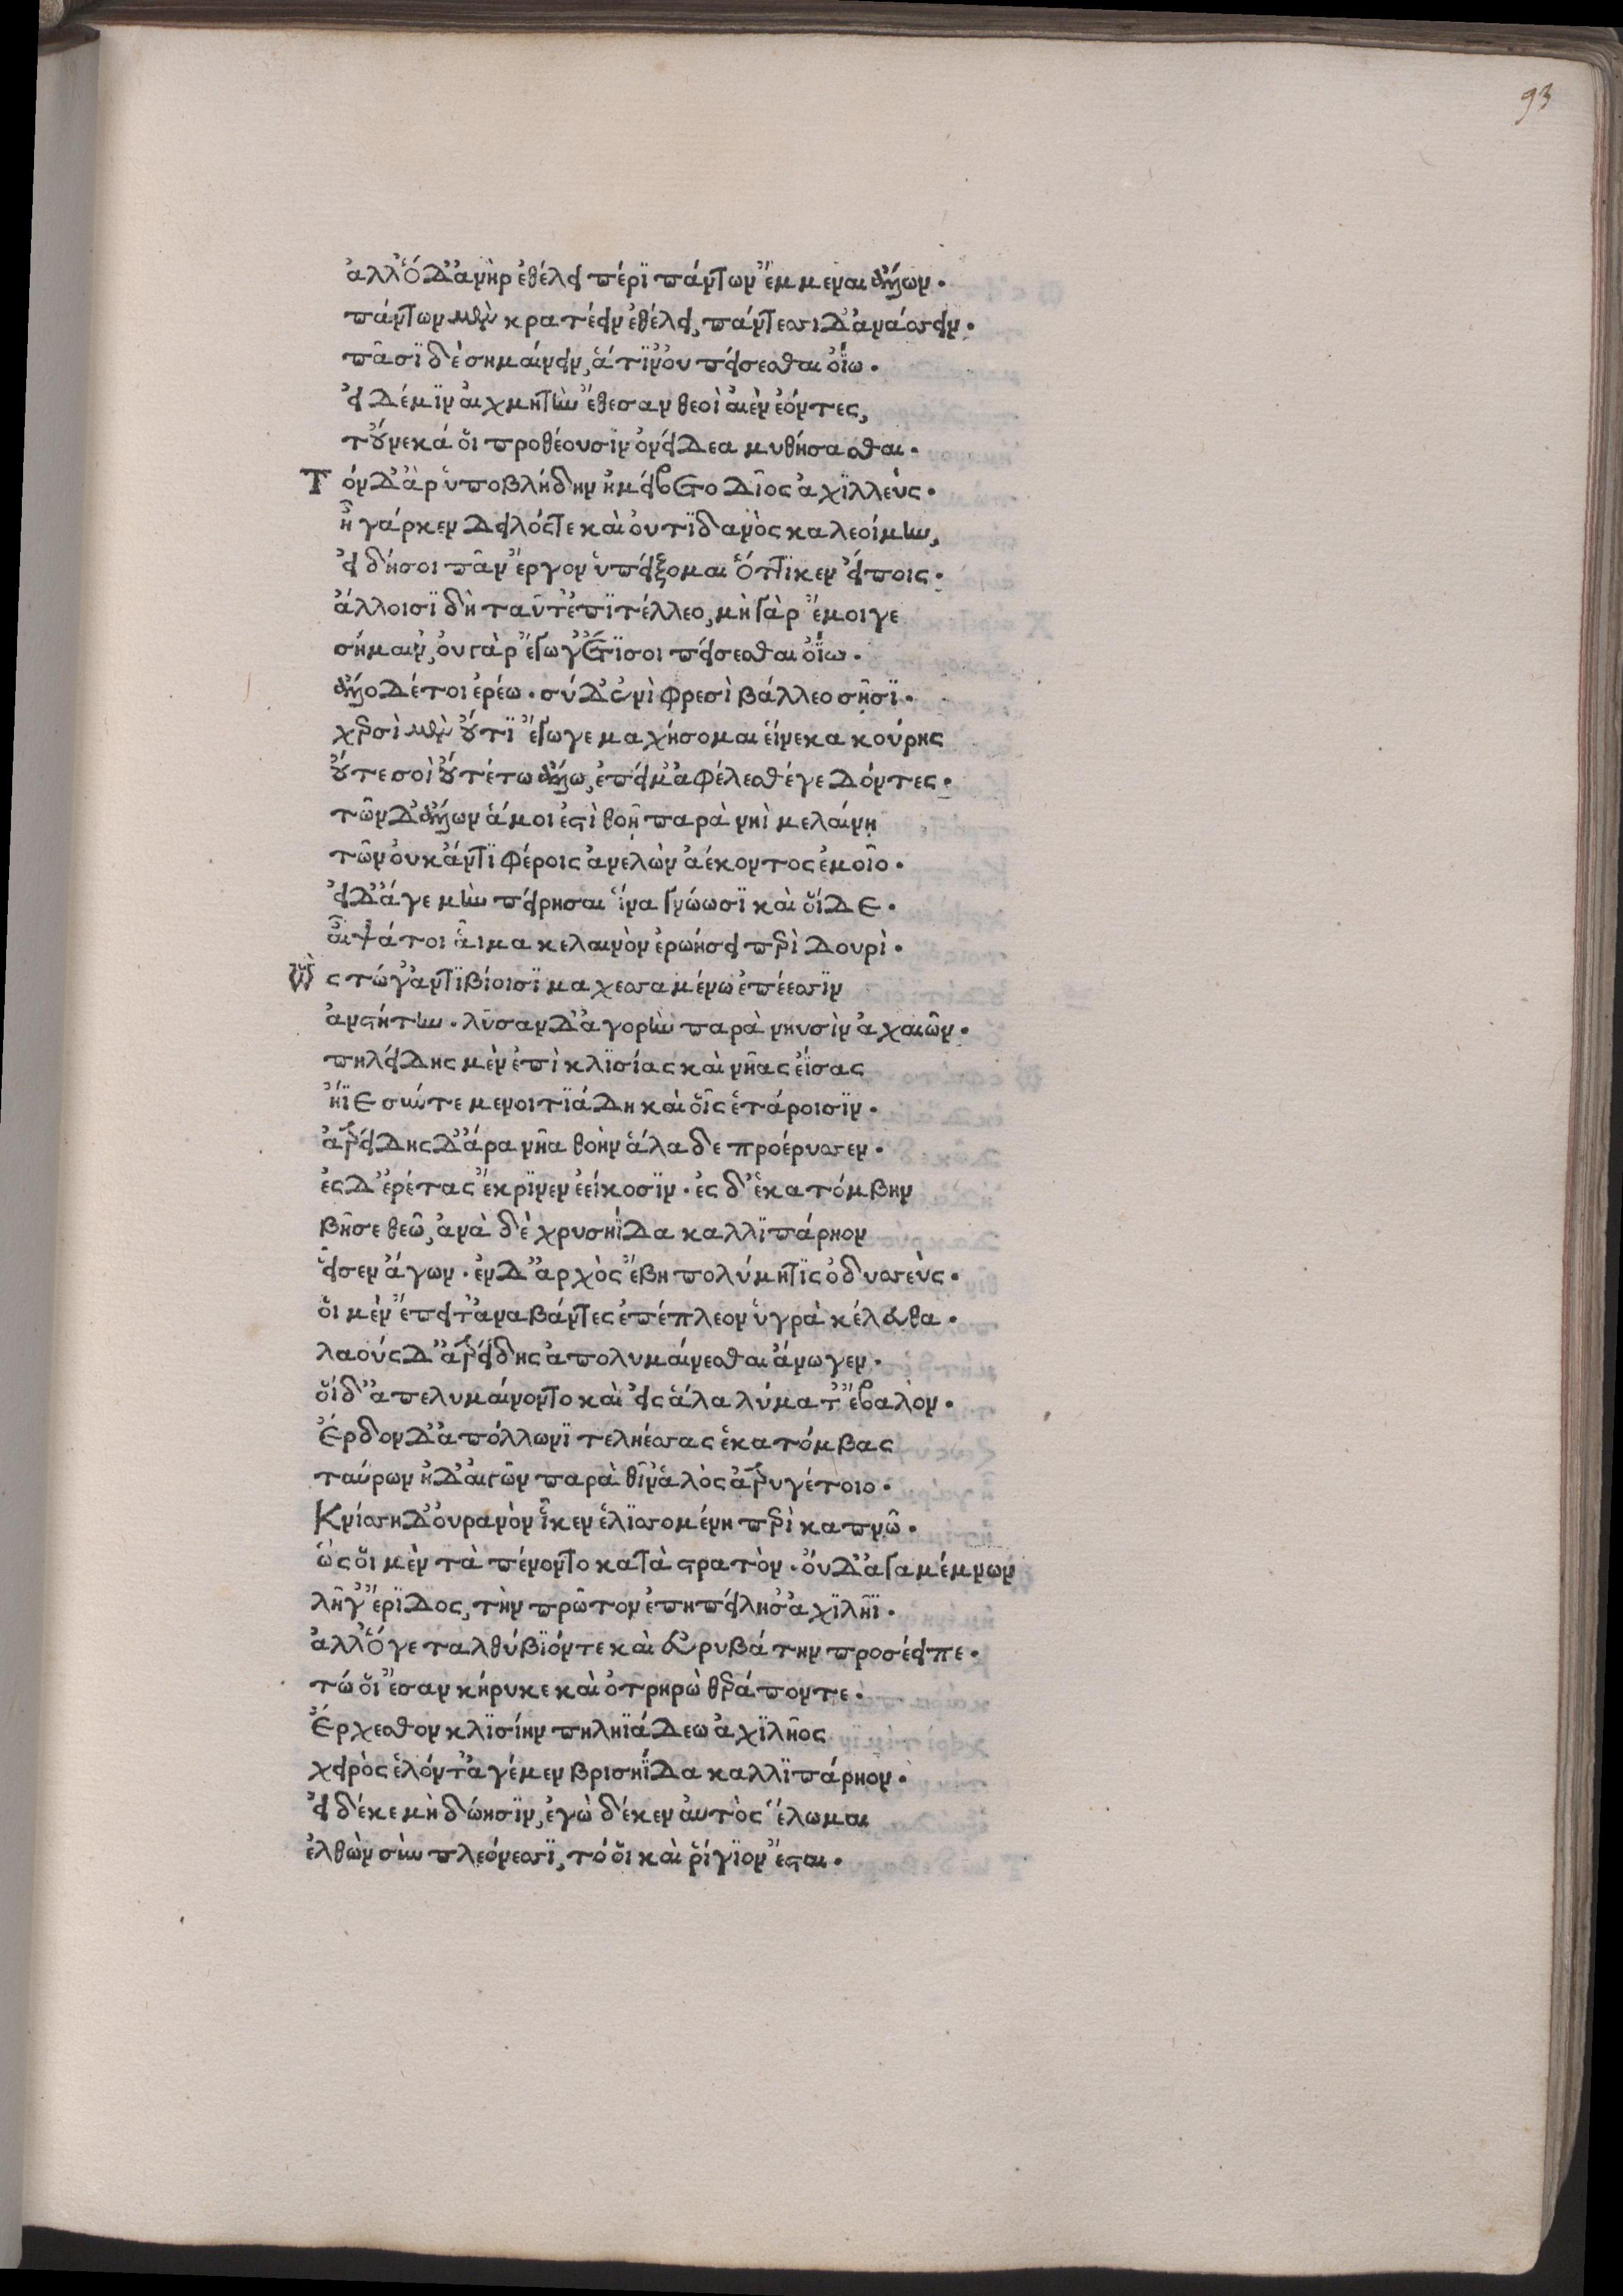 93
ἀλλ' ὅδ' ἀνὴρ ἐθέλει πέρϊ πάντων ἔμμεναι ἄλλων.
πάντων μὲν κρατέειν ἐθέλει, πάντεσσι δ' ἀνάσσειν.
πᾶσϊ δὲ σημαίνειν, ἅ τϊν' οὐ πείσεσθαι ὀΐω.
εἰ δέ μϊν αἰχμητὴν ἔθεσαν θεοὶ αἰὲν ἐόντες,
τοὔνεκά ὅι προθέουσϊν ὀνείδεα μυθήσασθαι.
Τὸν δ' ἄρ ὑποβλήδην ἠμείβετο δῖος ἀχϊλλεύς.
ἦ γάρ κεν δειλός τε καὶ οὐτϊδανὸς καλεοίμην,
εἰ δή σοι πᾶν ἔργον ὑπείξομαι ὅττϊ κεν εἴποις.
ἄλλοισϊ δὴ ταῦτ' ἐπϊτέλλεο, μὴ γὰρ ἔμοιγε
σήμαιν, οὐ γὰρ ἔγωγ' ἔτϊ σοι πείσεσθαι ὀΐω.
ἄλλο δέ τοι ἐρέω. σύ δ' ἐνὶ φρεσὶ βάλλεο σῇσϊ.
χερσὶ μὲν οὔτϊ ἔγωγε μαχήσομαι εἵνεκα κούρης
οὔτε σοὶ οὔτέ τω ἄλλω, ἐπεί μ' ἀφέλεσθέ γε δόντες.
τῶν δ' ἄλλων ἅ μοι ἐστὶ θοῇ παρὰ νηὶ μελαίνη
τῶν οὐκ ἄν τϊ φέροις ἀνελὼν ἀέκοντος ἐμοῖο.
εἰ δ' ἄγε μὴν πείρησαι ἵνα γνώωσϊ καὶ οἵδε.
αἶψά τοι αἷμα κελαινὸν ἐρωήσει περὶ δουρὶ.
Ὣς τώγ' ἀντϊβίοισϊ μαχεσσαμένω ἐπέεσσϊν
ἀνστήτην. λῦσαν δ' ἀγορὴν παρὰ νηυσὶν ἀχαιῶν.
πηλείδης μὲν ἐπὶ κλϊσίας καὶ νῆας ἐΐσας
ἤϊε σύν τε μενοιτϊάδη καὶ οἷς ἑτάροισϊν.
ἀτρείδης δ' ἄρα νῆα θοὴν ἅλα δε προέρυσσεν.
ἐς δ' ἐρέτας ἔκρϊνεν ἐείκοσϊν. ἐς δ' ἑκατόμβην
βῆσε θεῶ, ἀνὰ δὲ χρυσηΐδα καλλϊπάρηον
εἷσεν ἄγων. ἐν δ' ἀρχὸς ἔβη πολύμητϊς ὀδυσσεὺς.
ὅι μὲν ἔπειτ' ἀναβάντες ἐπέπλεον ὑγρὰ κέλευθα.
λαοὺς δ' ἀτρείδης ἀπολυμαίνεσθαι ἄνωγεν.
οἵ δ' ἀπελυμαίνοντο καὶ εἰς ἅλα λύματ' ἔβαλὸν.
Ἔρδον δ' ἀπόλλωνϊ τεληέσσας ἑκατόμβας
ταύρων ἠδ' αἰγῶν παρὰ θῖν' ἁλὸς ἀτρυγέτοιο.
Κνίσση δ' οὐρανὸν ἷκεν ἑλϊσσομένη περὶ καπνῶ.
ὣς ὅι μὲν τὰ πένοντο κατὰ στρατὸν. οὐδ' ἀγαμέμνων
λῆγ' ἔρϊδος, τὴν πρῶτον ἐπηπείλησ' ἀχϊλῆϊ.
ἀλλ' ὅγε ταλθύβϊόν τε καὶ εὐρυβάτην προσέειπε.
τώ ὅι ἔσαν κήρυκε καὶ ὀτρηρὼ θεράποντε.
Ἔρχεσθον κλϊσίην πηληϊάδεω ἀχϊλῆος
χειρὸς ἑλόντ' ἀγέμεν βρισηΐδα καλλϊπάρηον.
εἰ δέ κε μὴ δώησϊν, ἐγὼ δέ κεν ἀυτὸς ἕλωμαι
ἐλθὼν σὺν πλεόνεσσϊ, τό ὅι καὶ ῥίγϊον ἔσται.